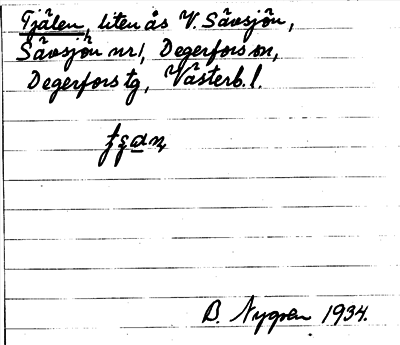 Tjälen, liten ås V. Sävsjön,
Sävsjön nr 1, Degerfors sn,
Degerfors tg, Västerb. l.
B. Nygren 1934.